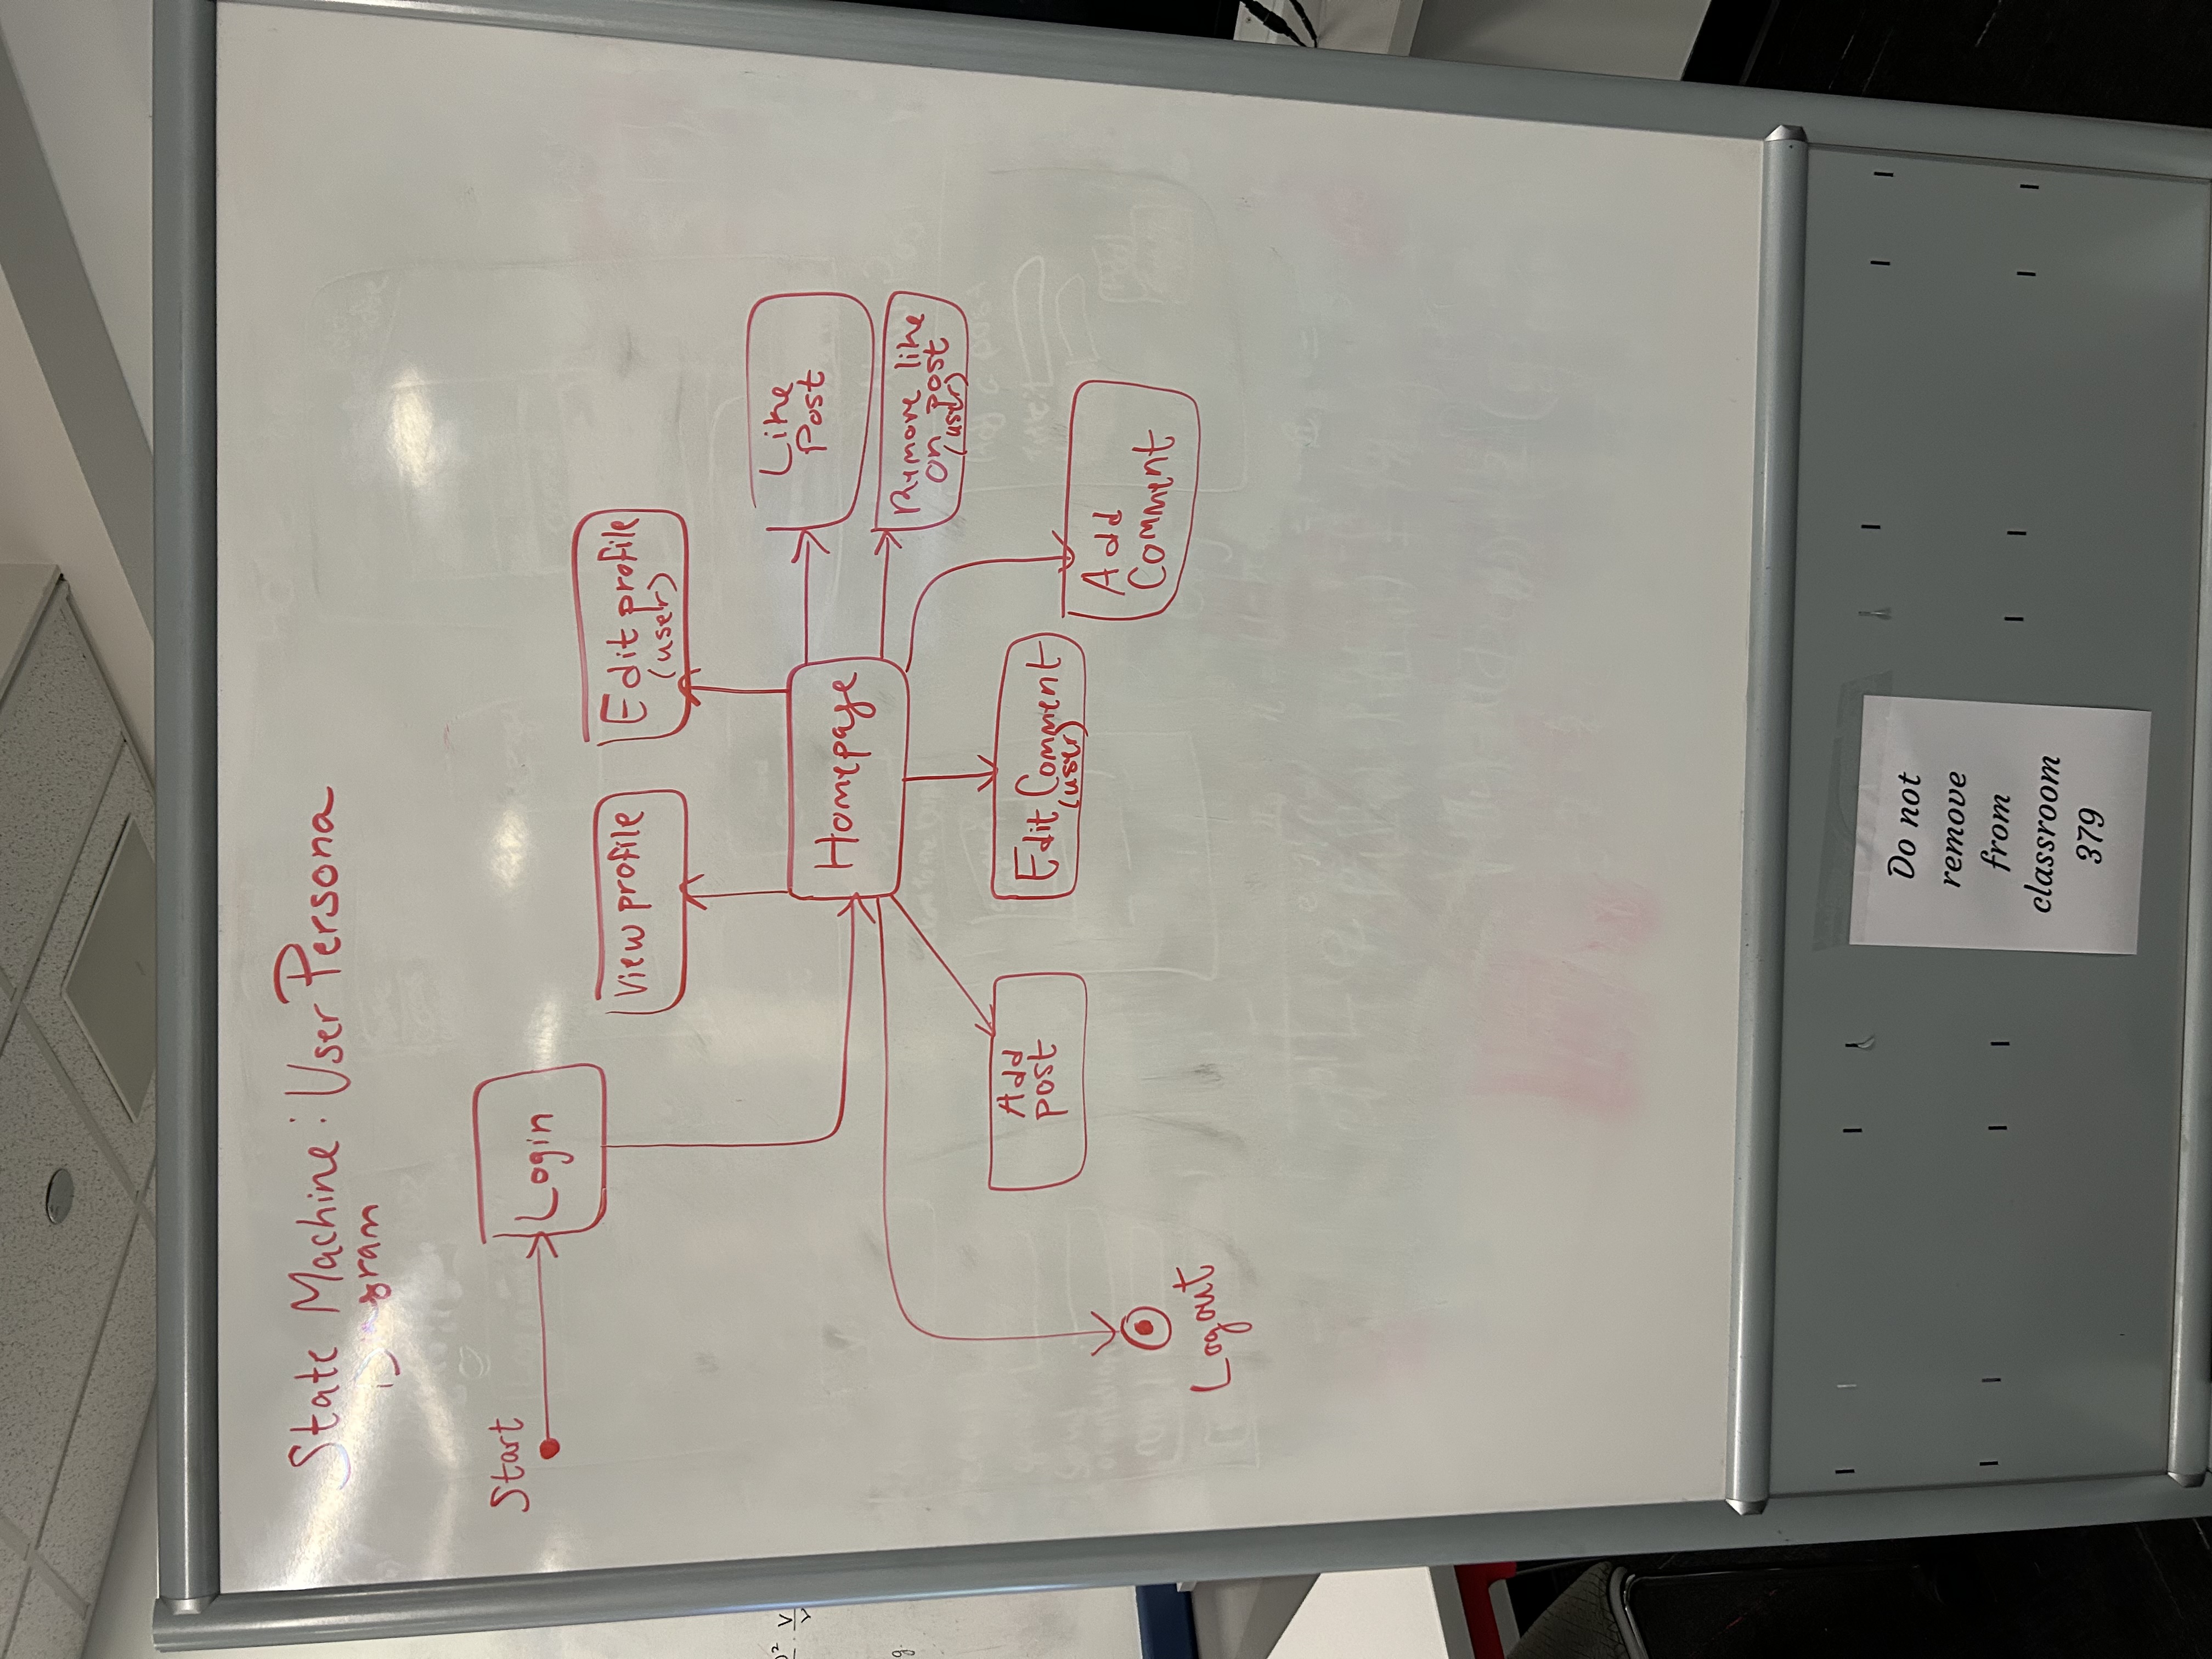 State Machine: User Persona
Diagram
Start
Login
View profile
Edit profile
(user)
Like
Post
Homepage
Remove like
on post
(user)
Add
post
Edit Comment
(user)
Add
Comment
Logout
Do not
remove
from
classroom
379